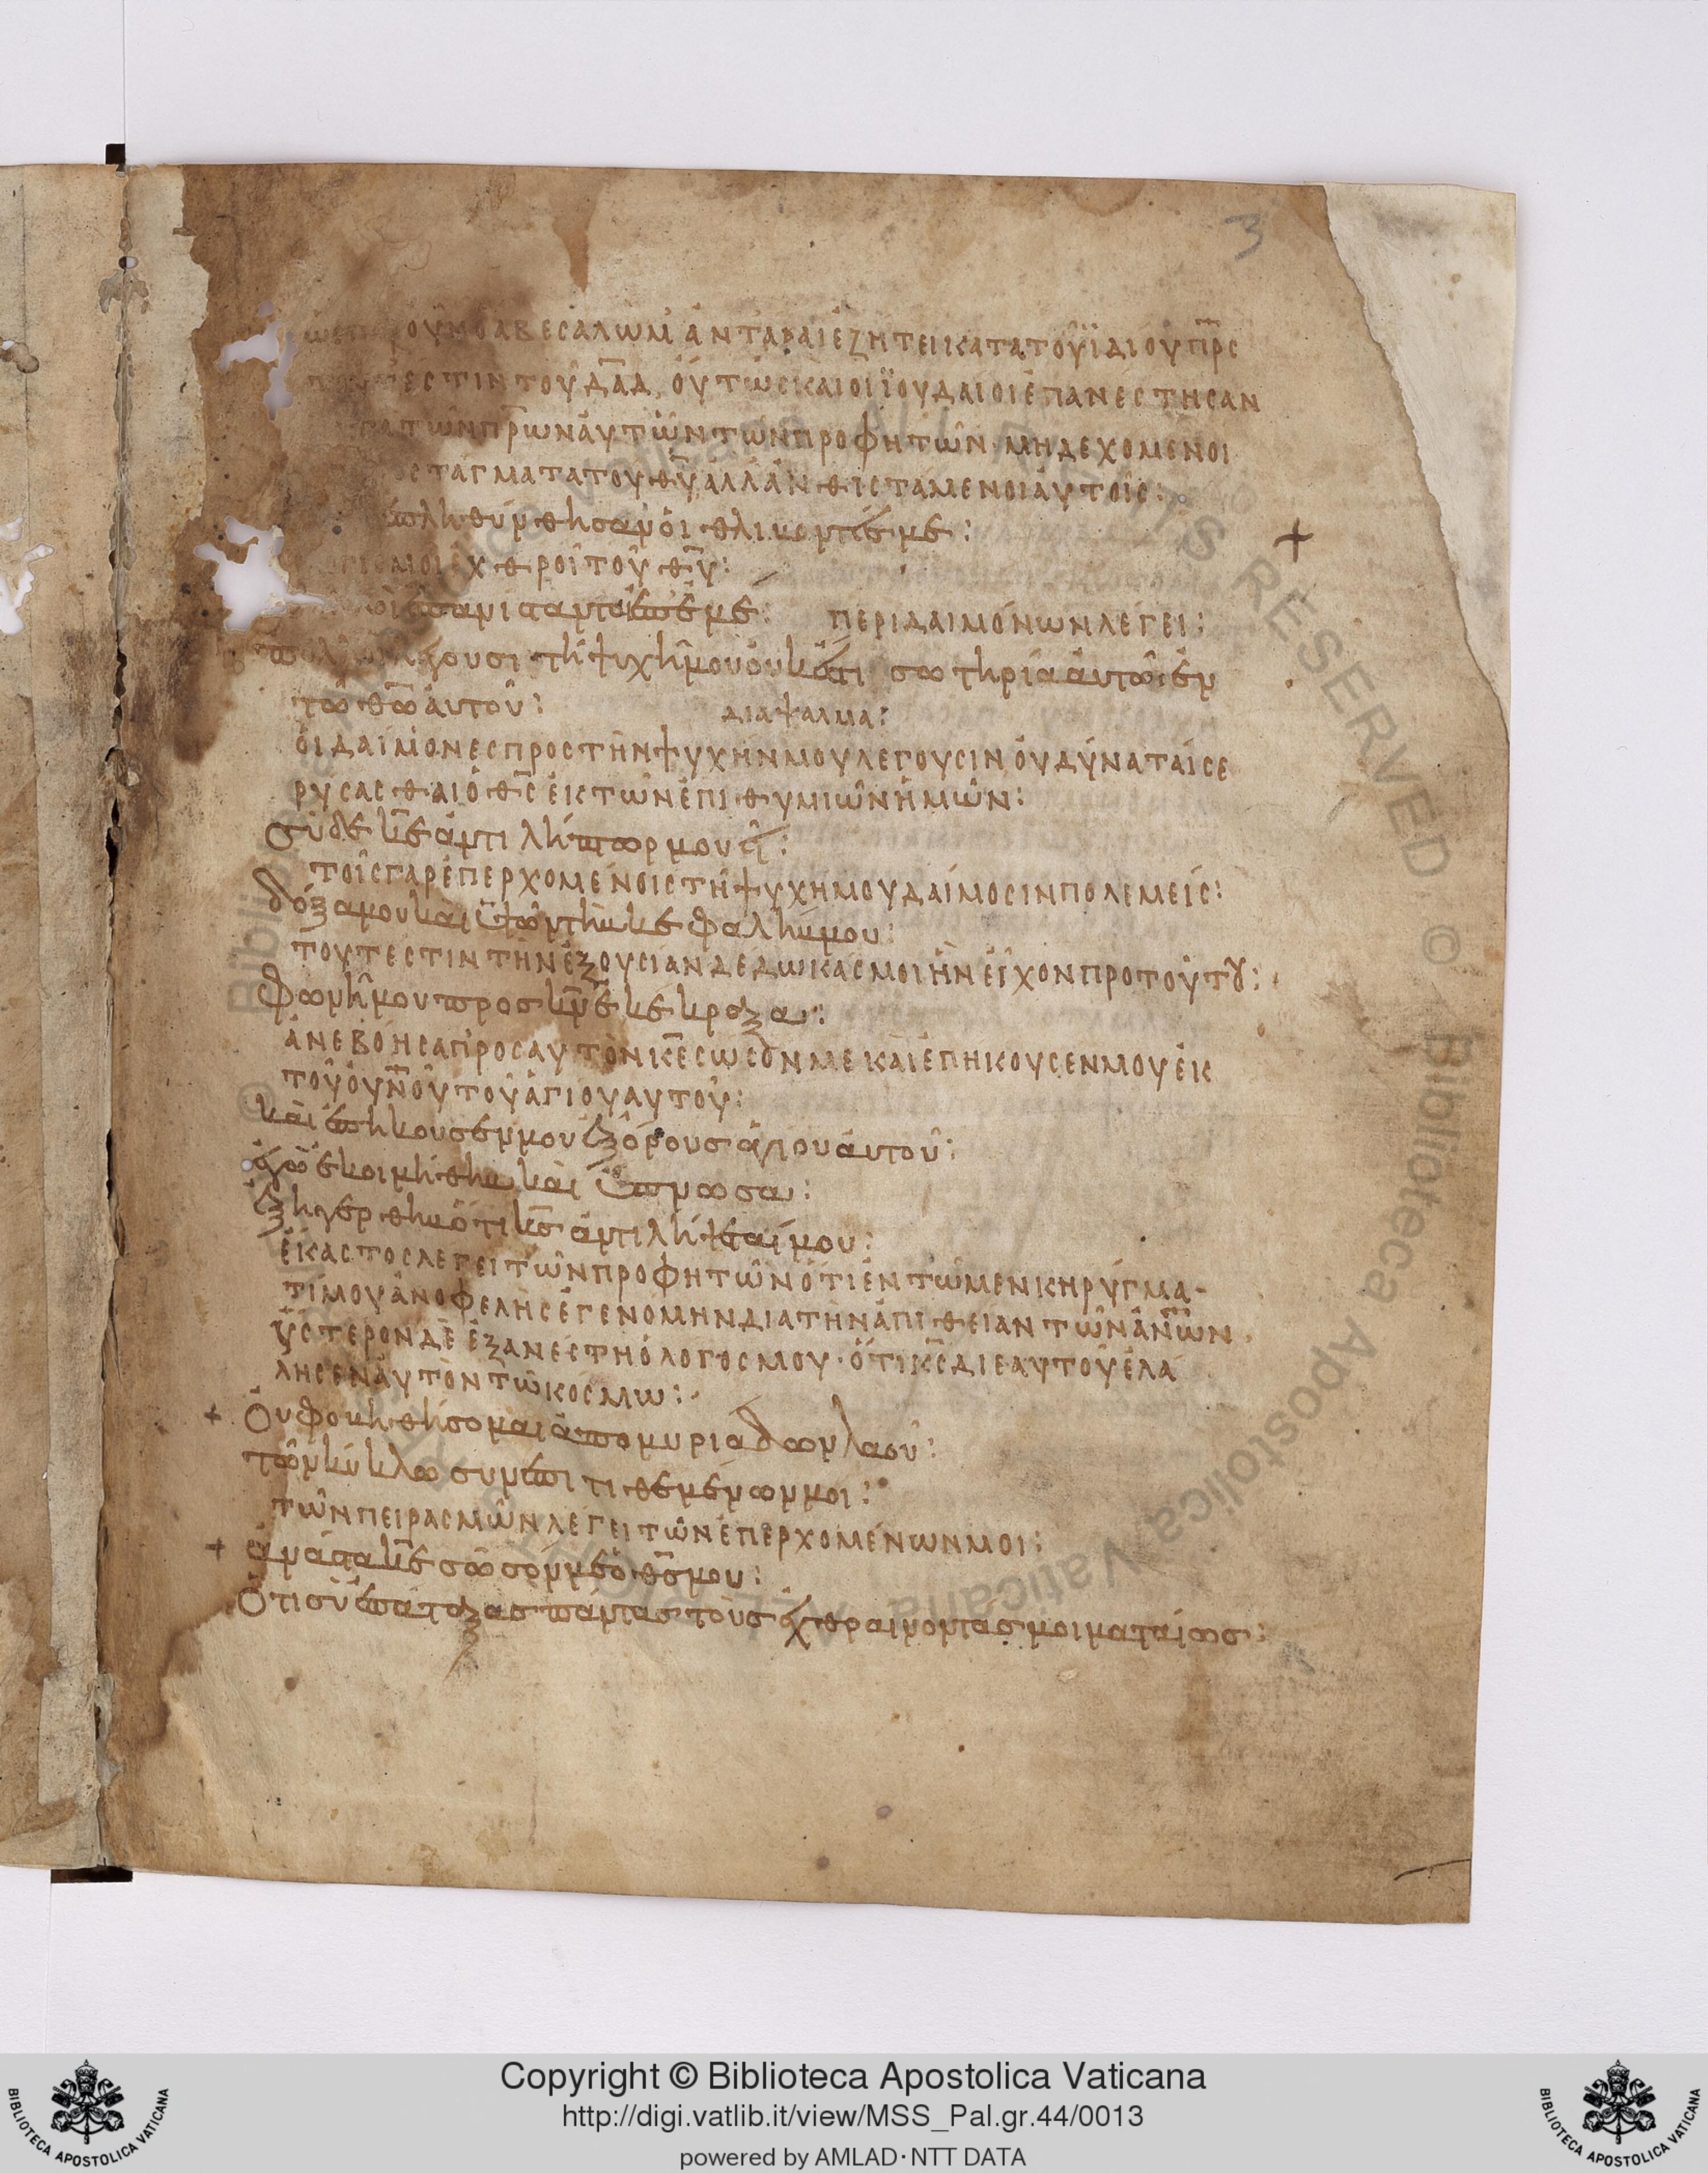 3
ἀβεσαλωμ ἀνταραι ἐζητει κατα του ϊδιου πρ̅ς
ἐστιν του δα̅δ, οὑτως και οἱ ϊουδαιοι ἐπανεστησαν
των πρ̅ων αὐτων των προφητων· μη δεχομενοι
ταγματα του θυ̅ ἀλλ ἀνθισταμενοι αὐτοις:
ἐπληθύνθησαν ὁι θλιβοντές με: +
ἐχθροι του θυ̅:
ἐπανίστανται ἐπ ἐμέ: περι δαιμόνων λέγει:
λέγουσι τῆ ψυχῆ μου ὀυκ ἔστι σωτηρία ἀυτῶ ἐν
τῶ θω̅ ἀυτοῦ: διαψαλμα:
ὁι δαιμονες προς την ψυχην μου λεγουσιν ὀυ δύναταί σε
ρυσασθαι ὁ θς̅ ἐκ των ἐπιθυμιων ἡμων:
σὺ δὲ κε̅ ἀντιλήπτωρ μου εἶ:
τοις γαρ ἐπερχομένοις τη ψυχη μου δαίμοσιν πολεμεις:
δόξα μου καὶ ὑψῶν τὴν κεφαλήν μου:
τουτέστιν την ἐξουσιαν δεδωκας μοι ἡν εἰχον προ τούτου:
φωνῆ μου προς κν̅ ἐκέκραξα:
ἀνεβόησα προς αυτον κε̅ σωσον με και ἐπηκουσεν μου ἐκ
του ουν̅ου του ἁγιου αυτου:
καὶ ἐπήκουσέν μου ἐξ όρους ἁγίου ἀυτοῦ:
ἐγὼ ἐκοιμήθην καὶ ὕπνωσα:
ἐξηγέρθην ὁτι κς̅ ἀντιλήψεταί μου:
ἑκαστος λεγει των προφητων ὁτι ἐν τω μεν κηρύγμα-
τι μου ἀνοφελης ἐγενομην δια την ἀπιθειαν των ἀν̅ων
ὑστερον δε ἐξανεστη ὁ λογος μου· ὁτι κς̅ δι εαυτου ἐλά
λησεν αὐτον τω κοσμω:
+ Ὀυ φοβηθήσομαι ἀπο μυριάδων λαοῦ:
τῶν κύκλω συνεπιτιθεμένων μοι:
των πειρασμων λεγει των ἐπερχομένων μοι:
+ ἀνάστα κε̅ σῶσόν με ὁ θς̅ μου:
Ὁτι σὺ ἐπάταξας πάντας τοὺς ἐχθραίνοντάς μοι ματαίως:
Copyright © Biblioteca Apostolica Vaticana
http://digi.vatlib.it/view/MSS_Pal.gr.44/0013
powered by AMLAD·NTT DATA
BIBLIOTECA APOSTOLICA VATICANA
BIBLIOTECA APOSTOLICA VATICANA